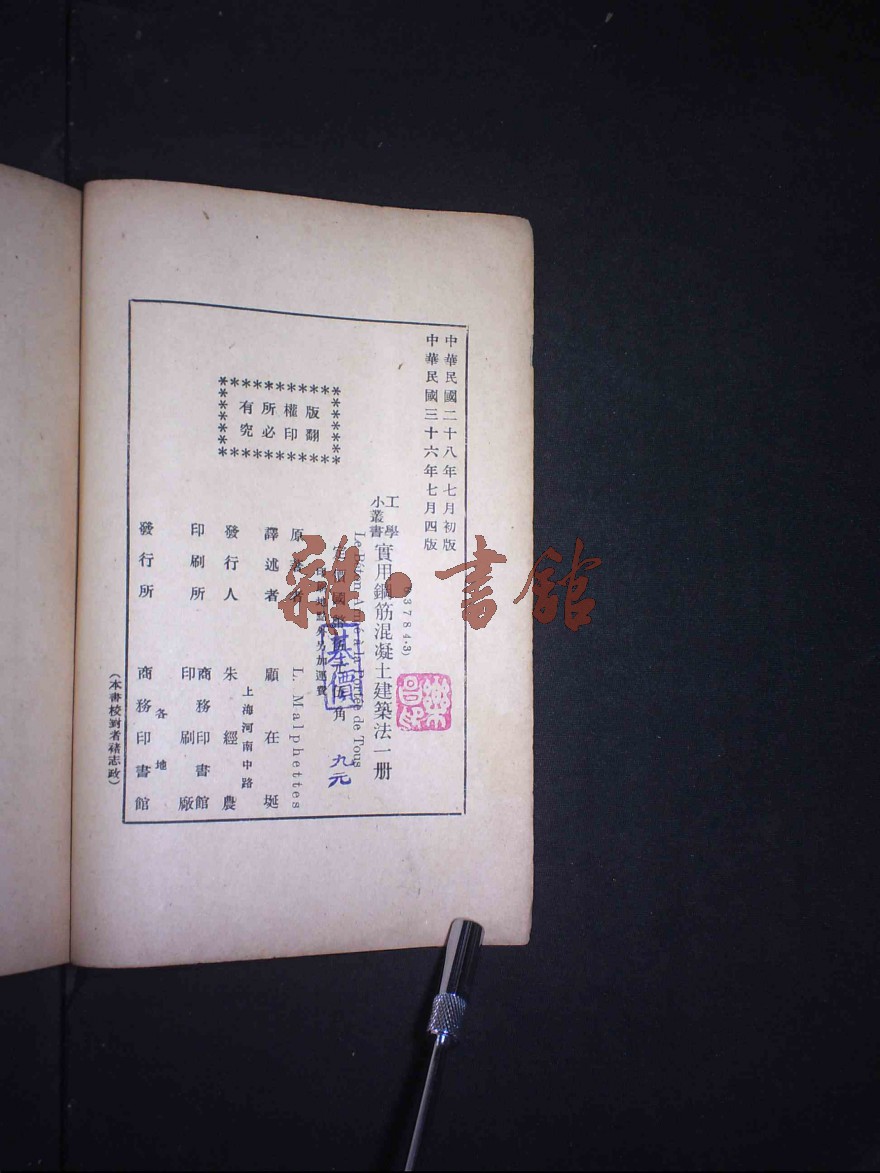 中華民國二十八年七月初版
中華民國三十六年七月四版
3784·3)
工學
小叢書
實用鋼筋混凝土建築法一册
Le Béton Armé à la Portée de Tous
國幣
角
印刷地點外另加運費
基價
九元
原著者 L. Malphettes
譯述者 顧在埏
發行人 朱經農
上海河南中路
印刷所 商務印書館
印刷廠
發行所 各地
商務印書館
版權所有
翻印必究
(本書校對者褚志政)
雜·書館